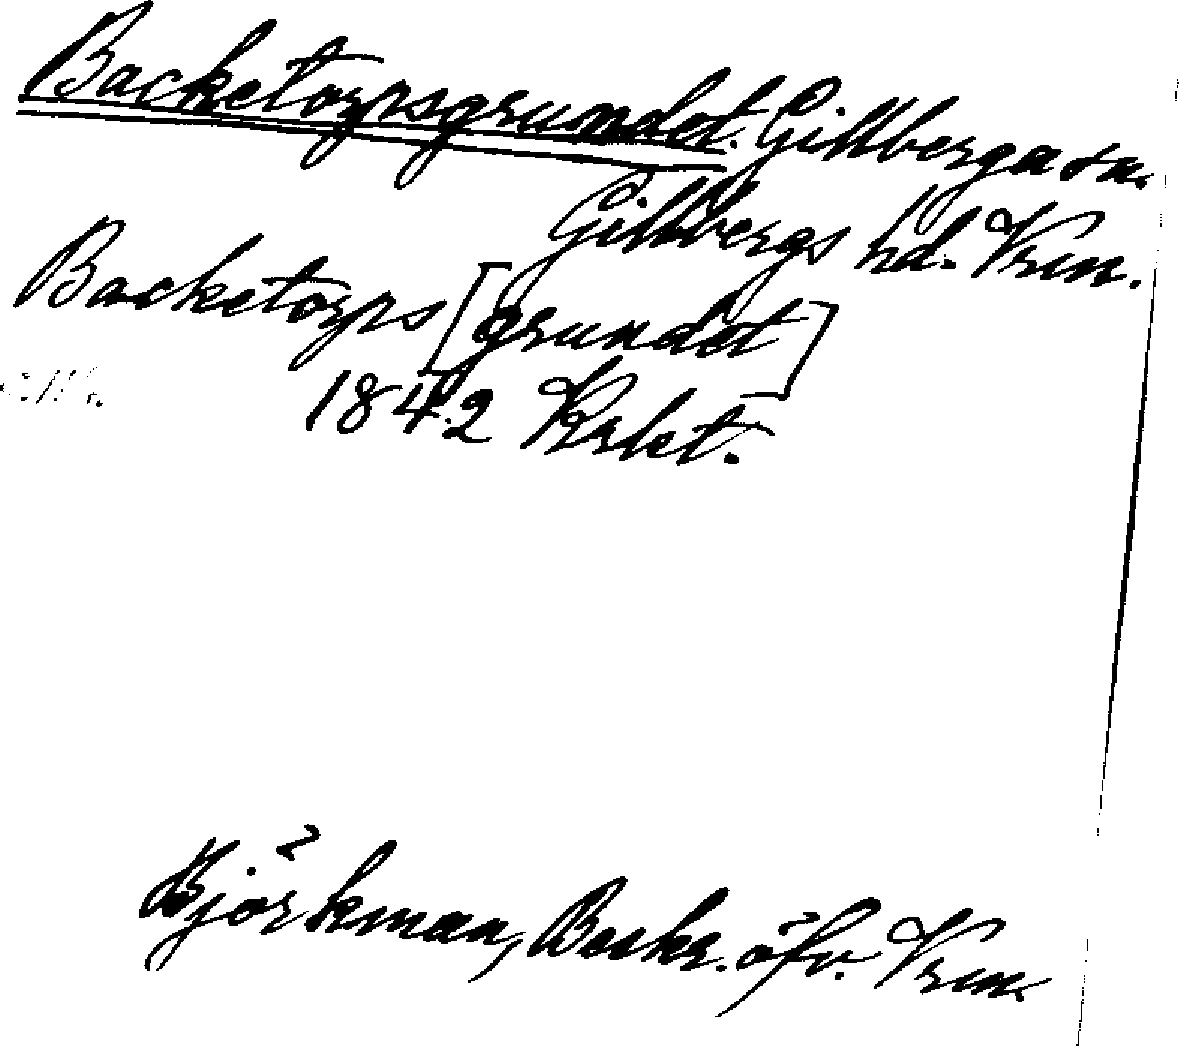 Backetorpsgrundet. Gillberga sn.
Gillbergs hd. Vrm.
Backetorps [grundet]
1842 Krbct.
Björkman, Beskr. öfv. Vrm.